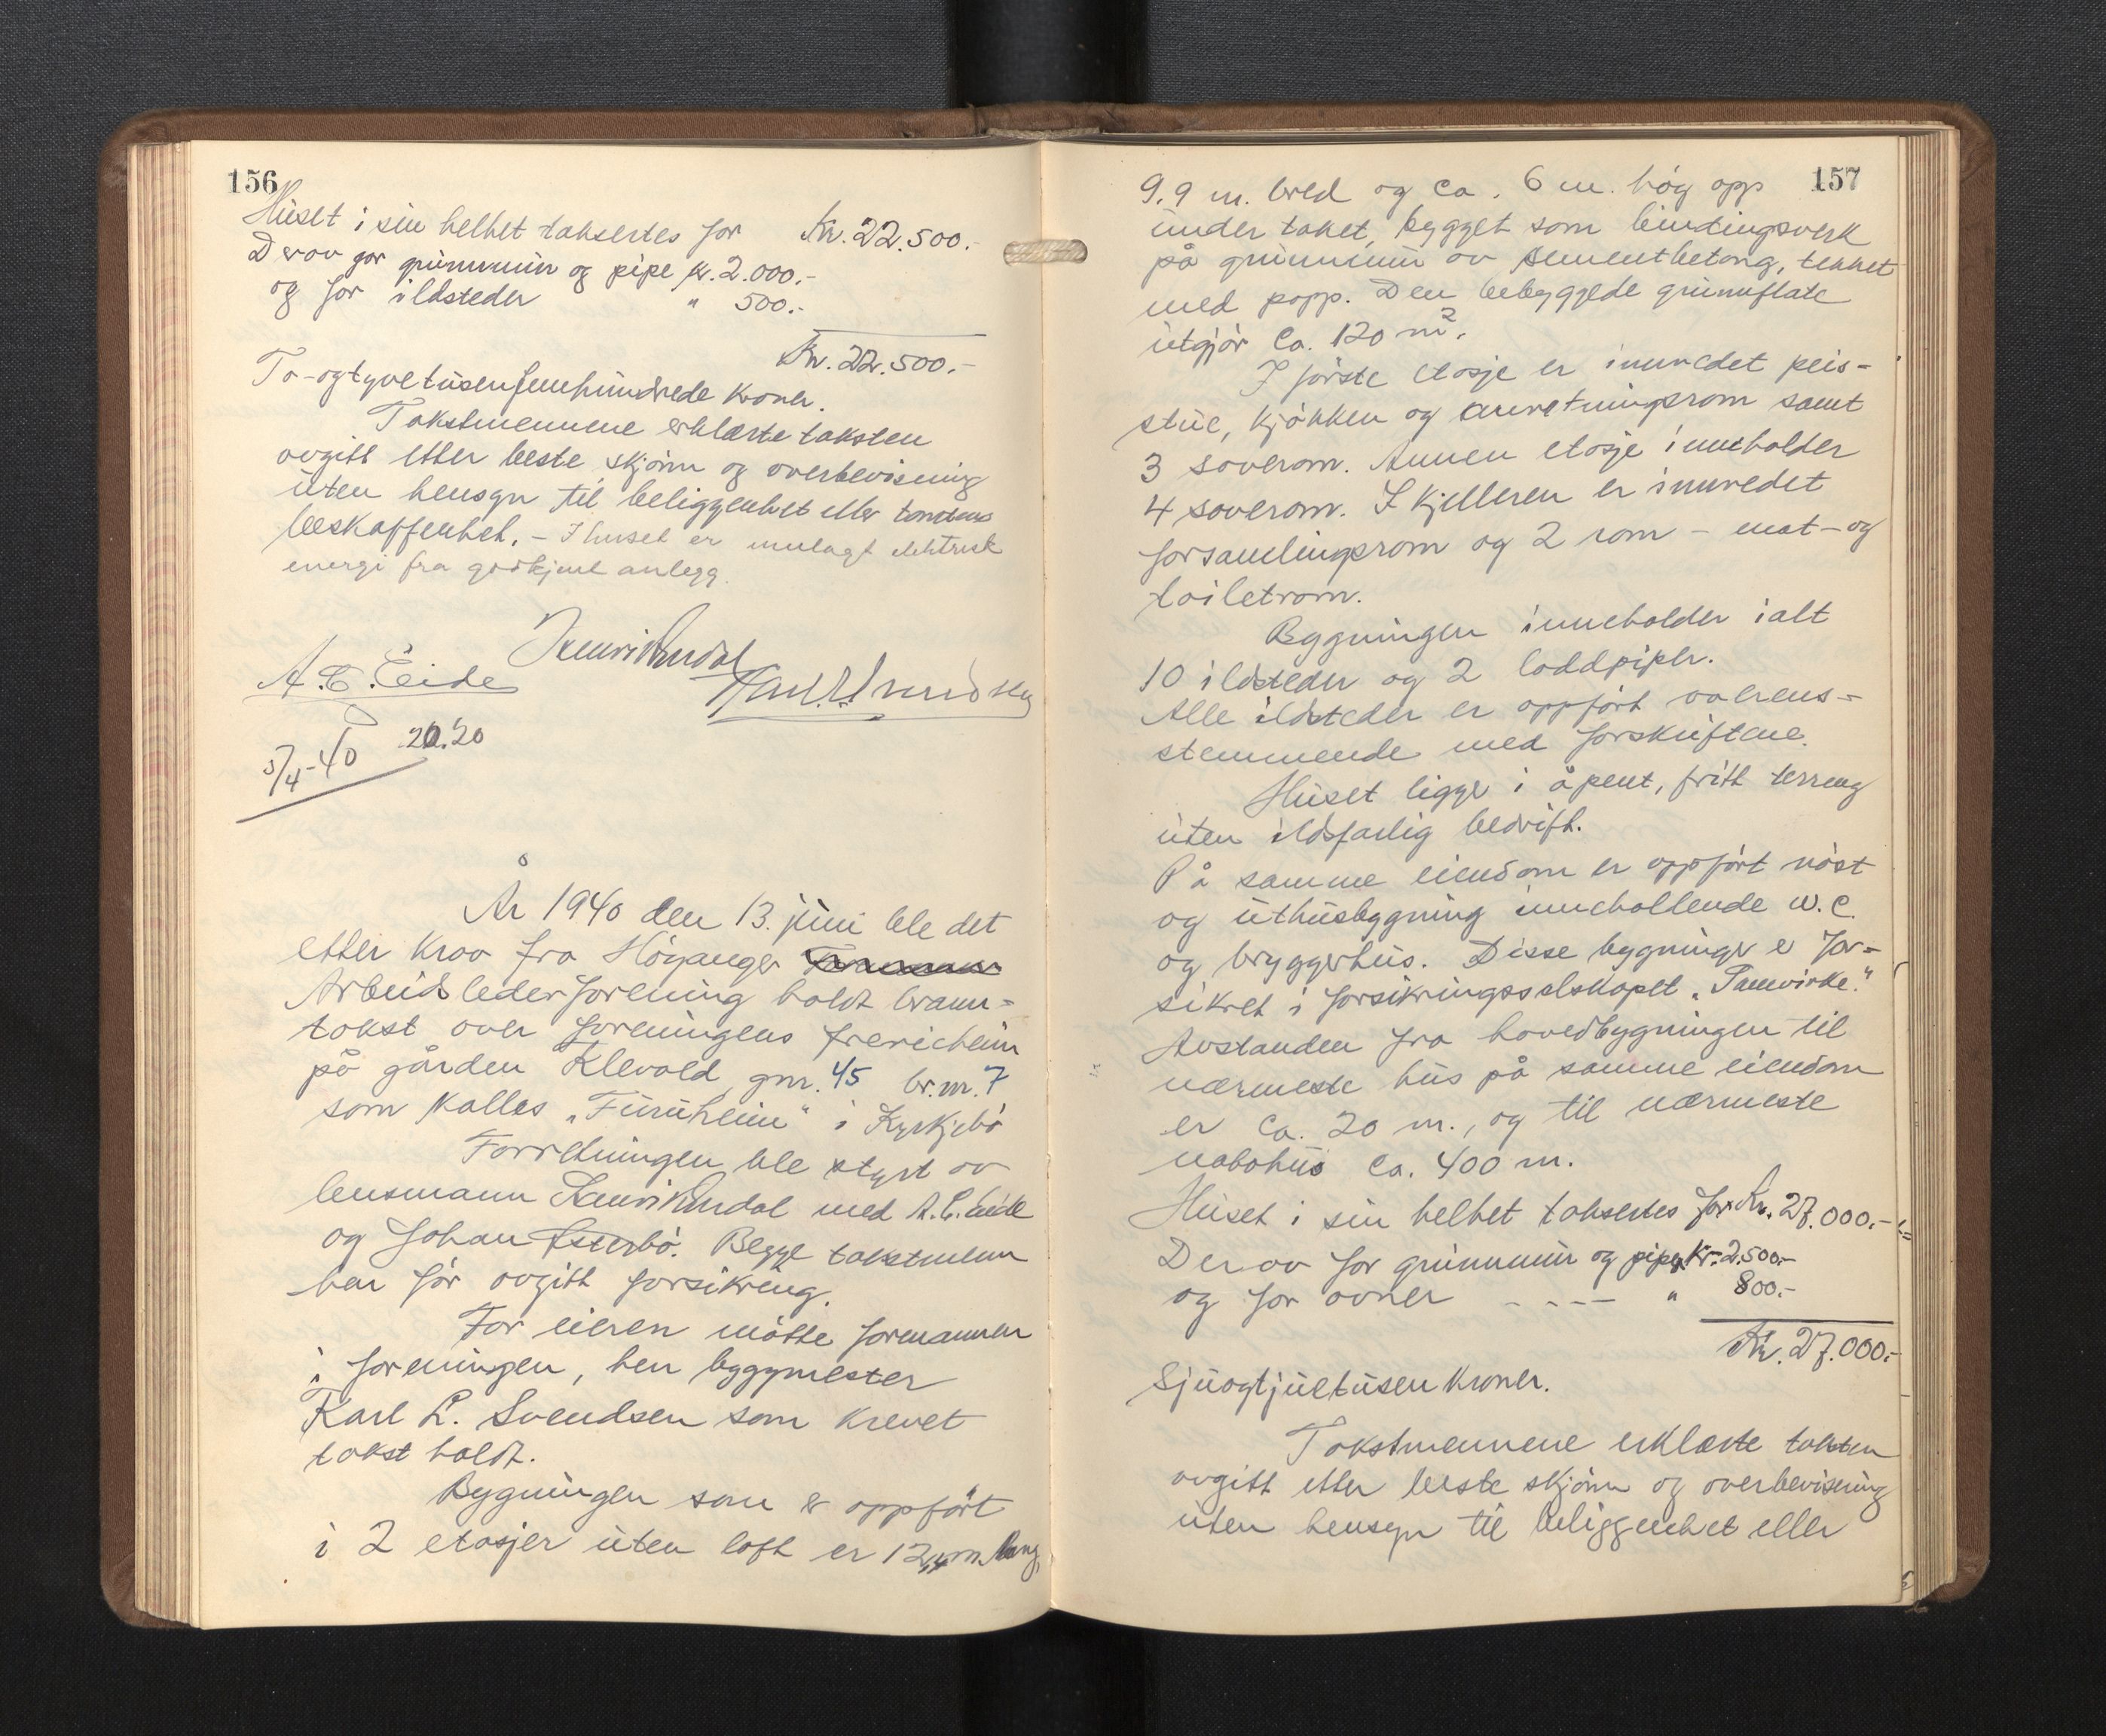 156
Huset i sin helhet taksertes for Kr. 22.500.-
Derav for grunnmur og pipe kr. 2.000.-
og for ildsteder " 500.-
Kr. 22.500.-
To-ogtyvetusenfemhundrede kroner.
Takstmennene erklærte taksten
avgitt etter beste skjønn og overbevisning
uten hensyn til beliggenhet eller tomtens
beskaffenhet. - I huset er innlagt elektrisk
energi fra godkjent anlegg.
A. C. Eide
5/4-40 20.20
År 1940 den 13. juni ble det
etter krav fra Höyanger
Arbeidslederforening holdt brann-
takst over foreningens frerieheim
på gården Klevold gnr. 45 br.nr. 7
som kalles „Furuheim" i Kyrkjebö
Forretningen ble styrt av
lensmann med A. C. Eide
og Johan Østerbö. Begge takstmenn
har för avgitt forsikring.
For eieren mötte formannen
i foreningen, herr byggmester
Karl L. Svendsen som krevet
takst holdt.
Bygningen som er oppfört
i 2 etasjer uten loft er 12,4 m. lang,
157
9,9 m. bred og ca. 6 m. höy opp
under taket, bygget som bindingsverk
på grunnmur av sementbetong, tekket
med papp. Den bebyggede grunnflate
utgjör ca. 120 m².
I förste etasje er innredet peis-
stue, kjökken og anretningsrom samt
3 soverom. Annen etasje inneholder
4 soverom. I kjelleren er innredet
forsamlingsrom og 2 rom - mat- og
toiletrom.
Bygningen inneholder ialt
10 ildsteder og 2 loddpiper.
Alle ildsteder er oppfört overens-
stemmende med forskriftene.
Huset ligger i åpent, fritt terreng
uten ildsfarlig bedrift.
På samme eiendom er oppfört nöst
og uthusbygning inneholdende w.c.
og bryggerhus. Disse bygninger er for-
sikret i forsikringsselskapet „Samvirke."
Avstanden fra hovedbygningen til
nærmeste hus på samme eiendom
er ca. 20 m., og til nærmeste
nabohus ca. 400 m.
Huset i sin helhet taksertes for Kr. 27.000.-
Derav for grunnmur og piper Kr. 2.500.-
og for ovner - - - - " 800.-
Kr. 27.000.-
Sjuogtjuetusen kroner.
Takstmennene erklærte taksten
avgitt etter beste skjönn og overbevisning
uten hensyn til beliggenhet eller